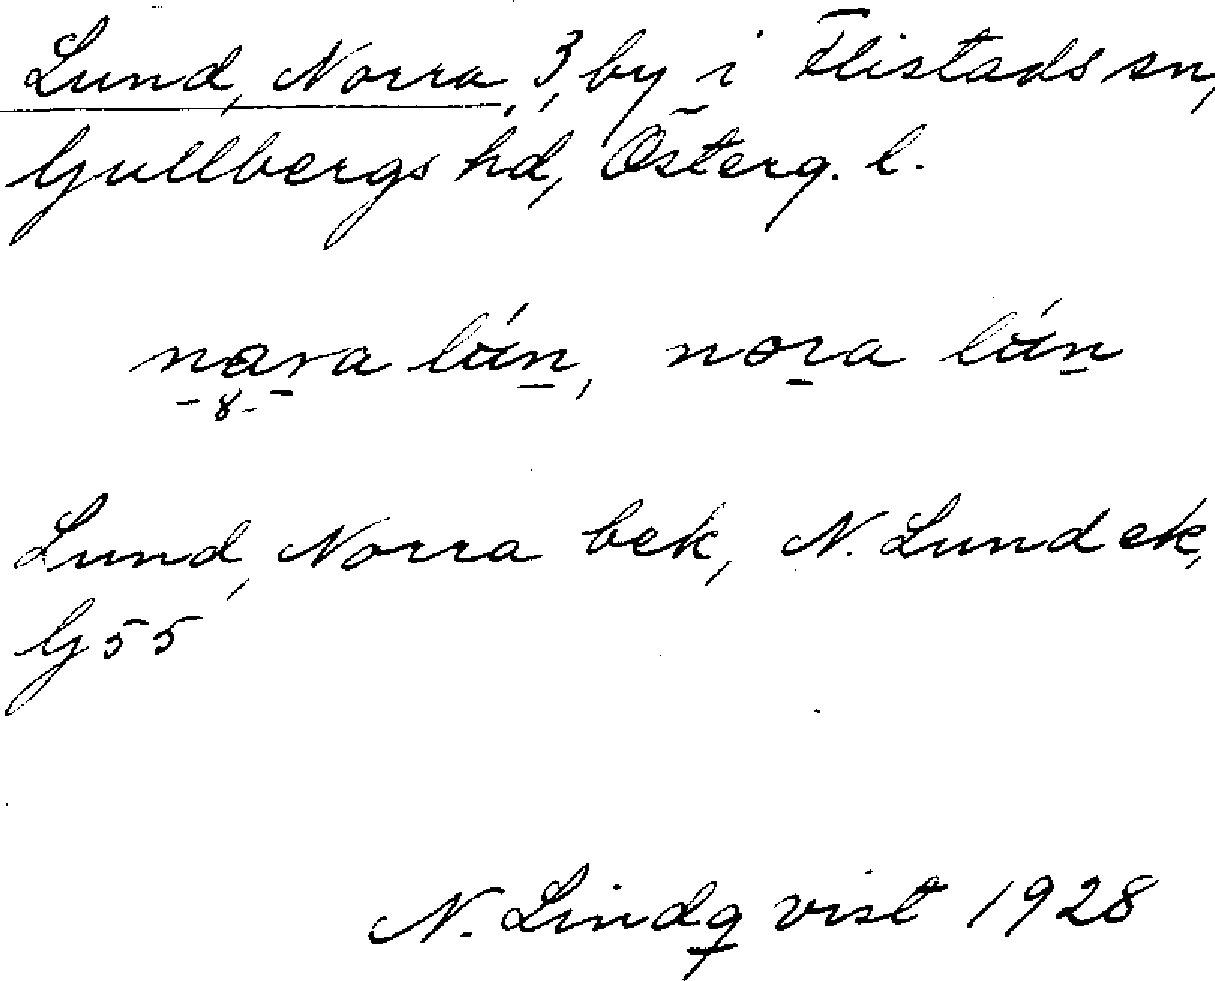 Lund, Norra, 3, by i Flistads sn,
Gullbergs hd, Österg. l.
nora lún, nora lún
Lund, Norra bek, N. Lund ek,
G 55
N. Lindqvist 1928